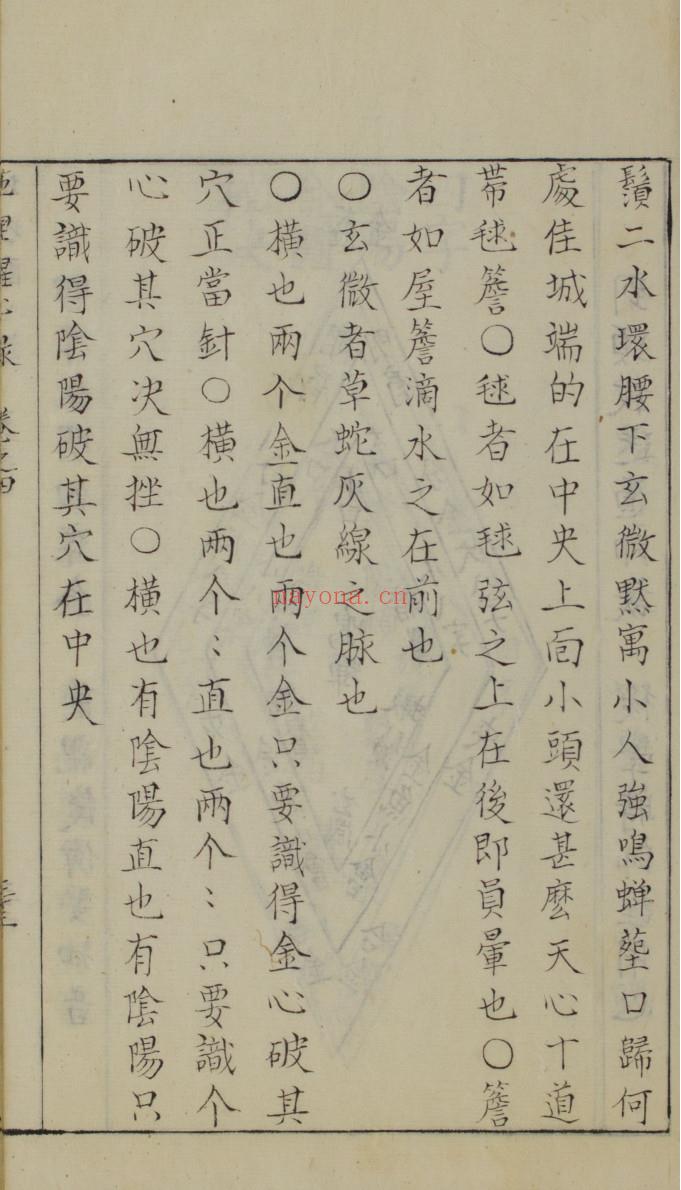 鬚二水環腰下玄微默寓小人強鳴蟬塟口歸何
處佳城端的在中央上面小頭還甚麽天心十道
帶毬簷○毬者如毬弦之上在後即員暈也○簷
者如屋簷滴水之在前也
○玄微者草蛇灰線之脉也
○横也兩个金直也兩个金只要識得金心破其
穴正當針○横也兩个〻直也兩个〻只要識个
心破其穴决無挫○横也有陰陽直也有陰陽只
要識得陰陽破其穴在中央
卷之四
nayona.cn